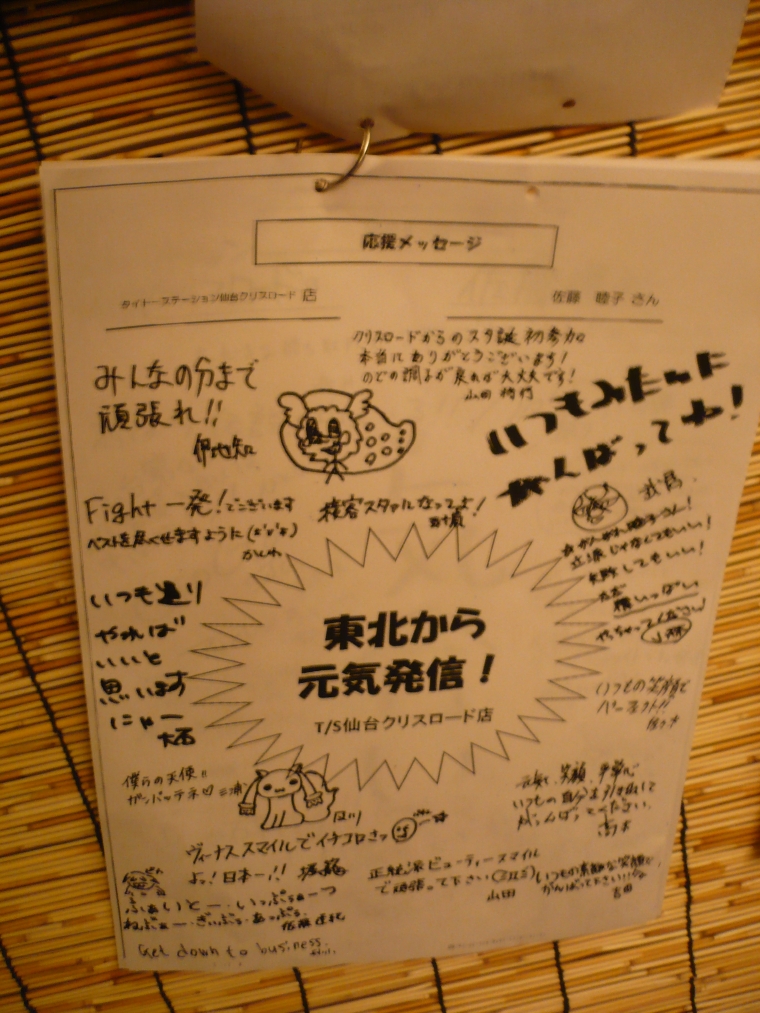 応援メッセージ
タイトーステーション仙台クリスロード 店
佐藤 睦子 さん
クリスロードからのスタ誕初参加
本当にありがとうございます!
のどの調子が 大丈夫です!
山田
みんなの分まで
頑張れ!!
伊地知
いつもみたいに
がんばってネ!
Fight 一発!でございます
ベストを尽くせますように
かしわ
接客スタァになってよ!
いつも通り
やれば
いいと
思います
にゃー
大西
立派じゃなくてもいい!
失敗してもいい!
ただ
精いっぱい
東北から
元気発信!
T/S仙台クリスロード店
いつもの笑顔で
パーフェクト!!
僕らの天使!!
ガンバッテネ
三浦
及川
元気と、笑顔、
いつもの
がんばってください。
ヴィーナススマイルでイチコロさっ
よっ!日本一!!
正統派ビューティースマイル
で頑張って下さい
山田
いつもの素敵な笑顔で、
がんばって下さい!!
吉田
ふぁいとー・いっぷぁーつ
ねぶぁー・ぎぶぶ・あっぷぶ
Get down to business.